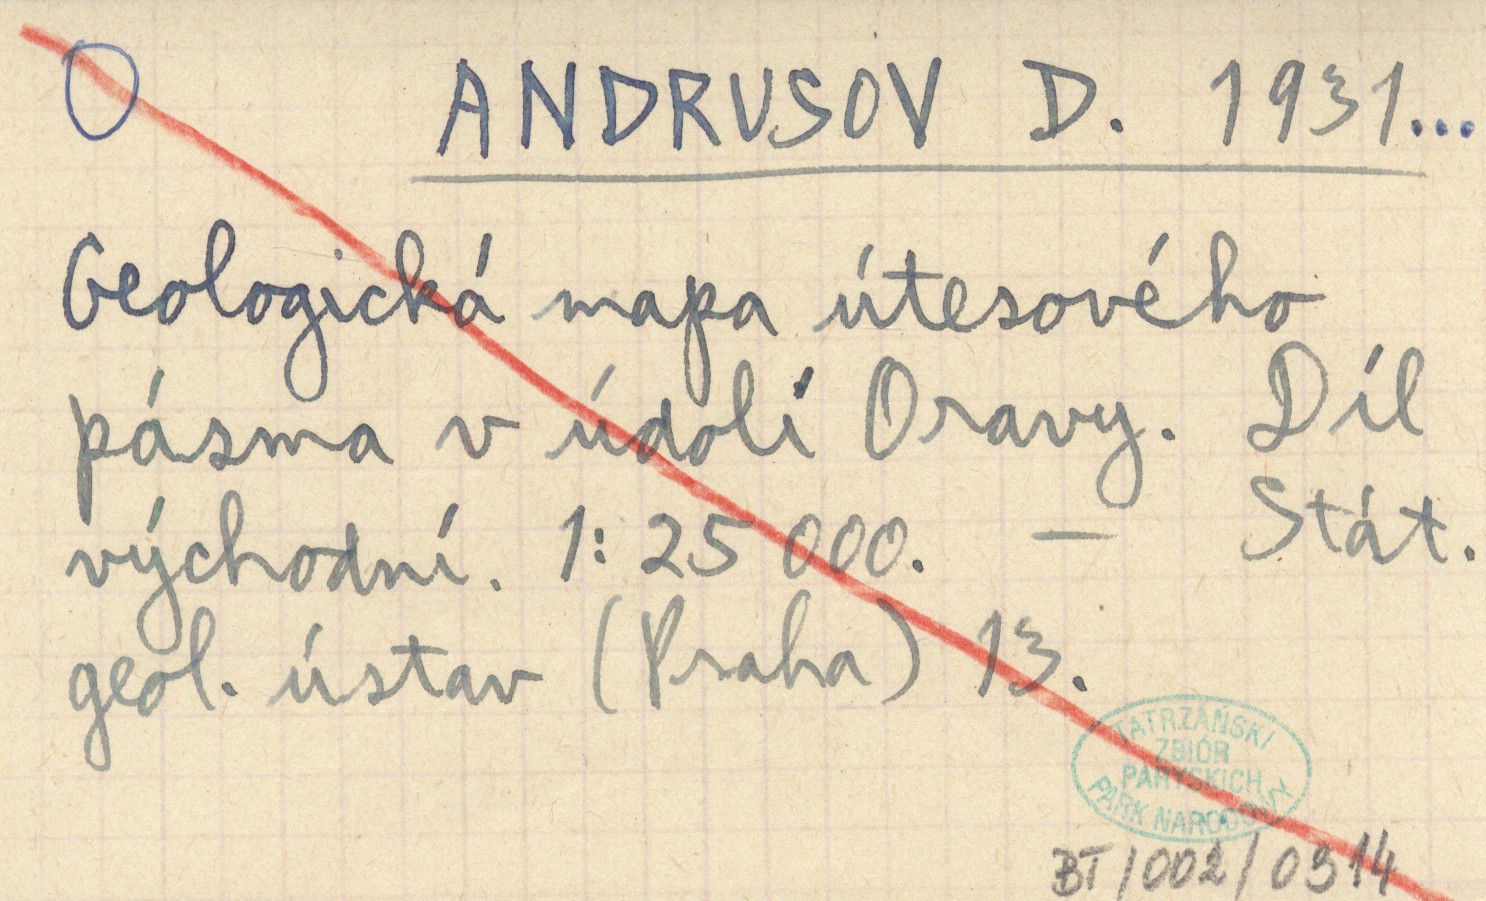 O
ANDRUSOV D. 1931...
Geologická mapa útesového
pásma v údolí Oravy. Díl
východní. 1:25 000. — Stát.
geol. ústav (Praha) 13.
TATRZAŃSKI
ZBIÓR
PARYSKICH
PARK NARODOWY
BT/002/0314